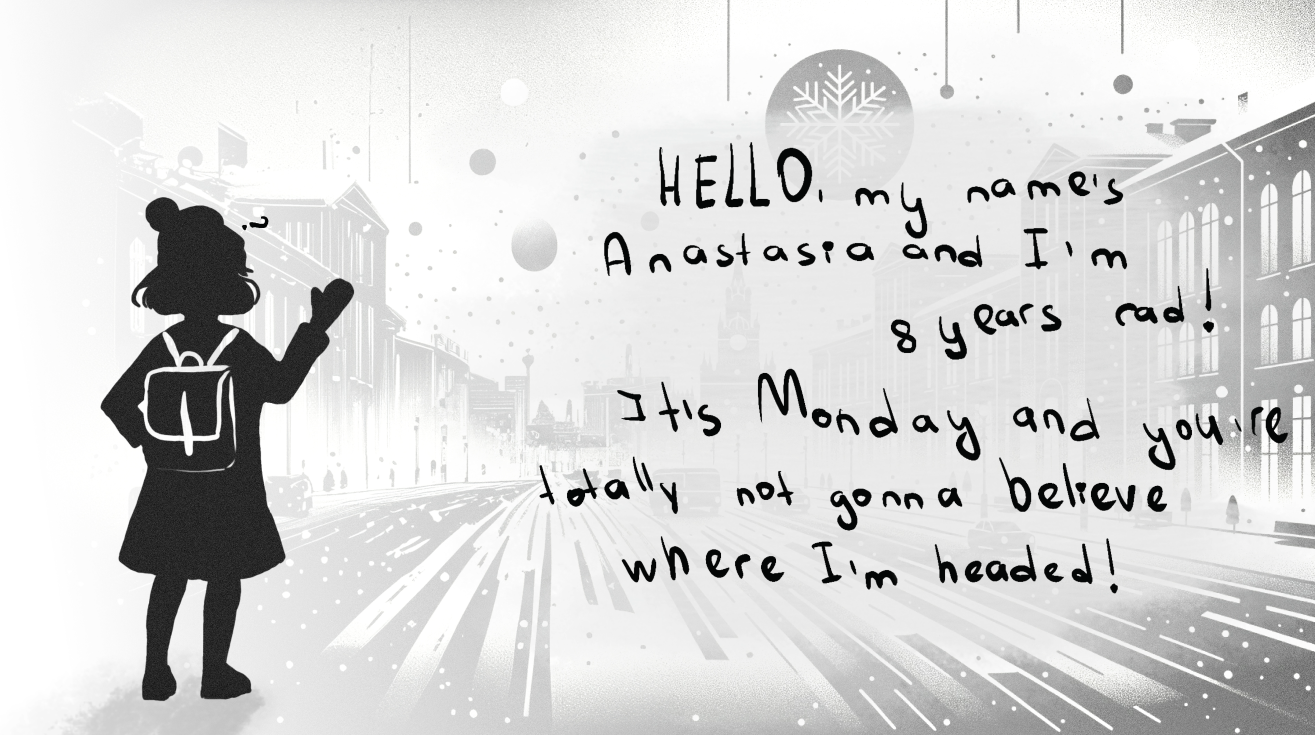 HELLO, my name's
Anastasia and I'm
8 years rad!
It's Monday and you're
totally not gonna believe
where I'm headed!